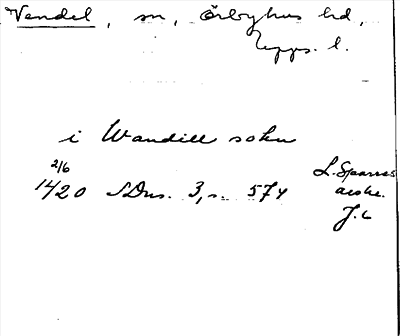 Vendel, sn, Örbyhus hd,
Upps. l.
i Wandill sokn
2/6
1420 SDns. 3, s. 574
L. Sparres
aeske.
J. L